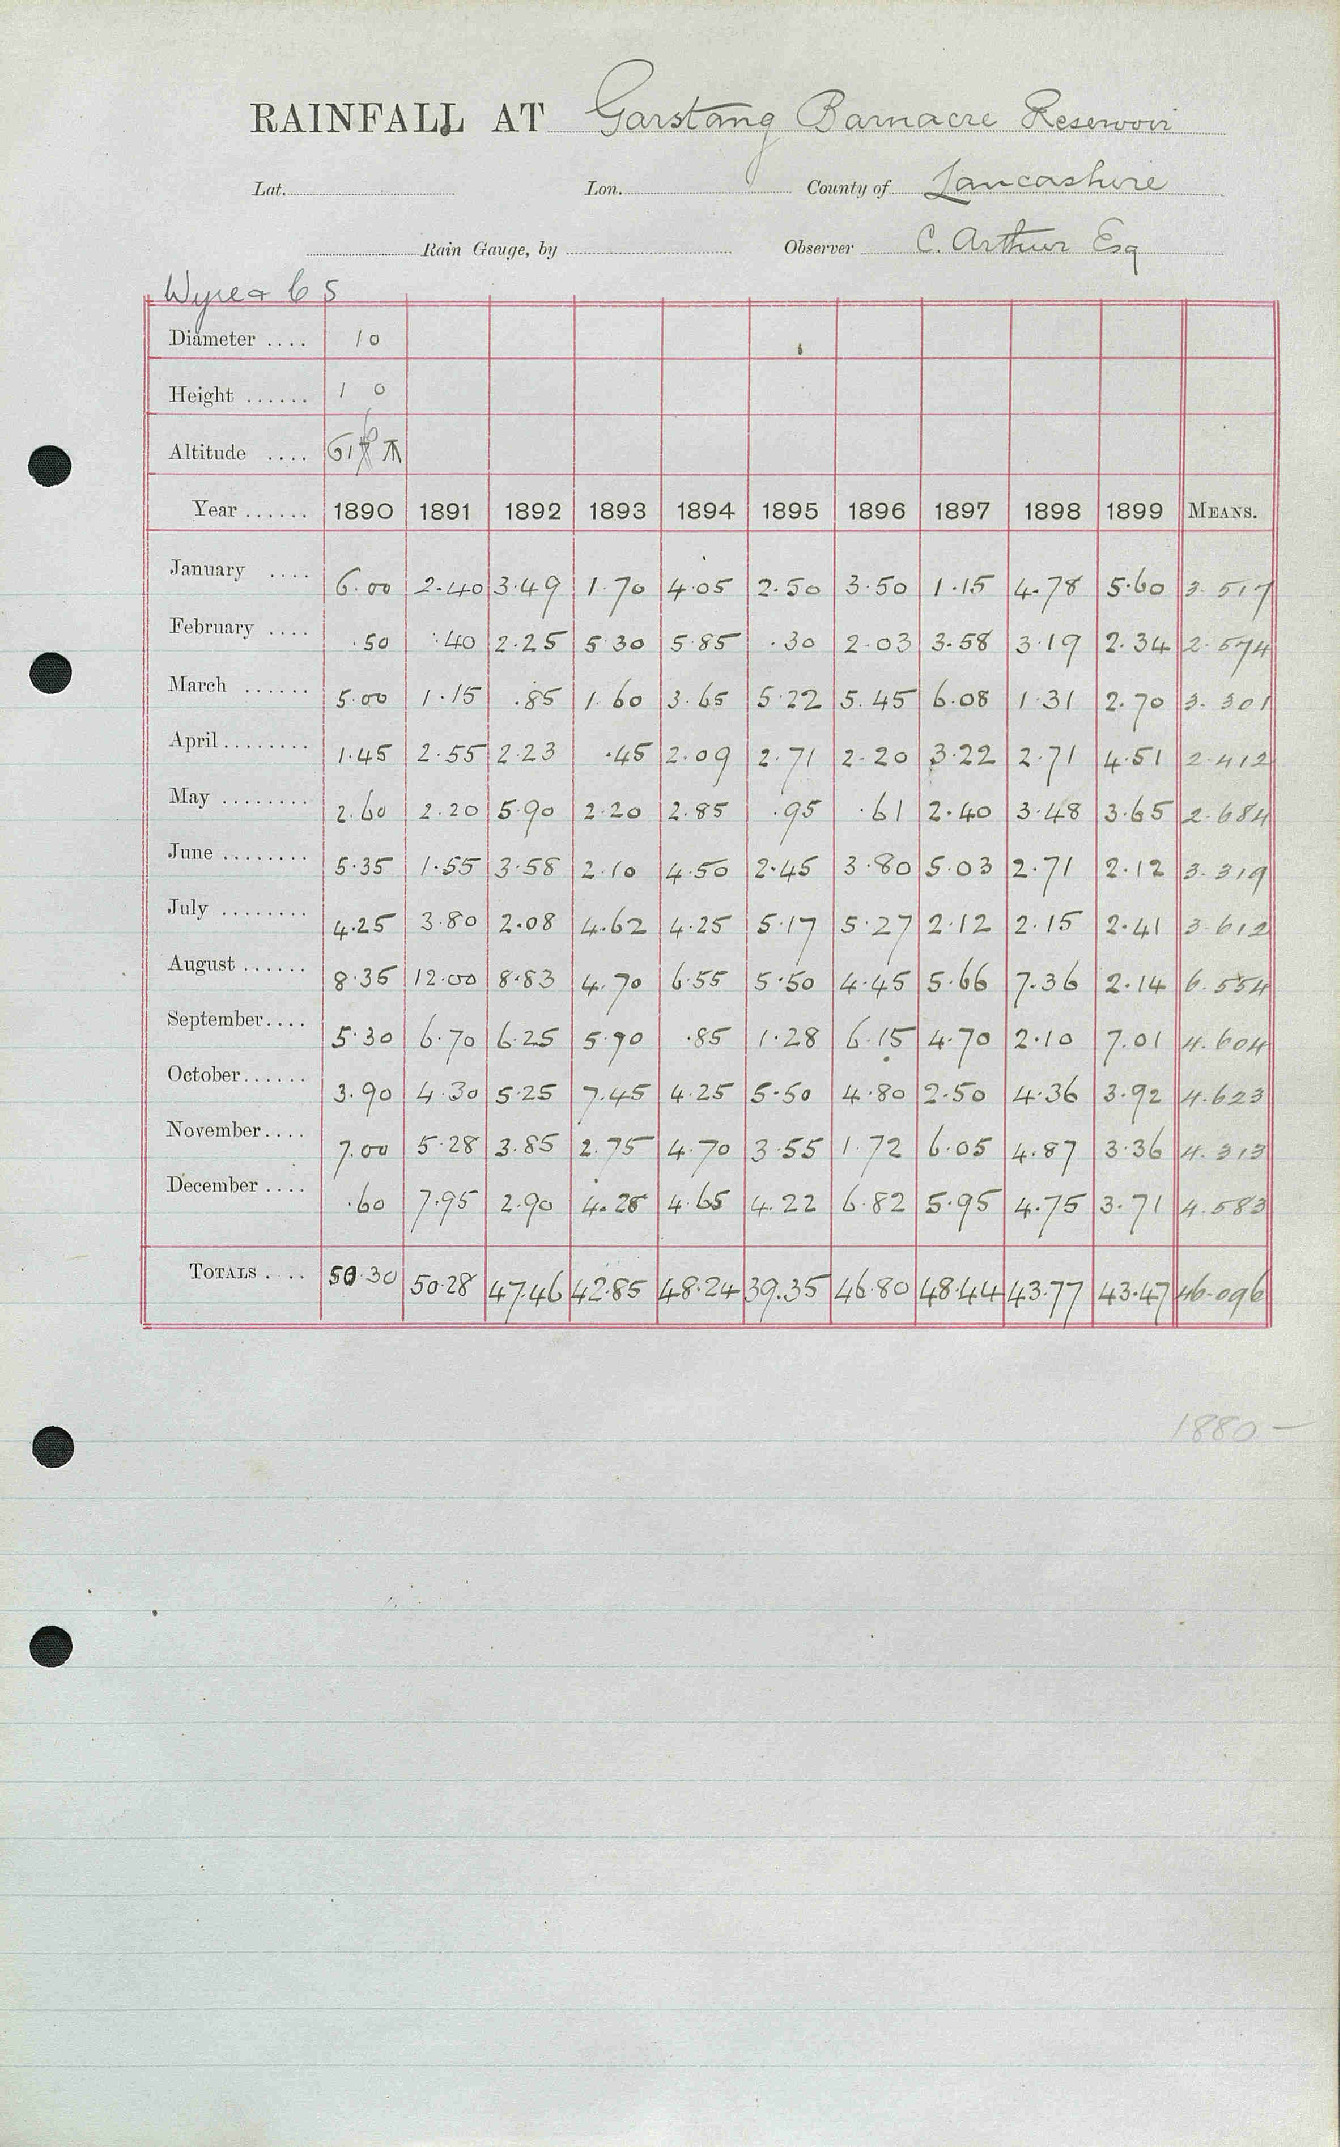 RAINFALL AT Garstang Barnacre Reservoir
Lat. Lon. County of Lancashire
Rain Gauge, by Observer C. Arthur Esq
Wyre
Diameter .... 10
Height ...... 1 0
Altitude ....
Year ...... 1890 1891 1892 1893 1894 1895 1896 1897 1898 1899 MEANS.
January .... 6.00 2.40 3.49 1.70 4.05 2.50 3.50 1.15 4.78 5.60 3.517
February .... .50 .40 2.25 5.30 5.85 .30 2.03 3.58 3.19 2.34 2.574
March ...... 5.00 1.15 .85 1.60 3.65 5.22 5.45 6.08 1.31 2.70 3.301
April ........ 1.45 2.55 2.23 .45 2.09 2.71 2.20 3.22 2.71 4.51 2.412
May ........ 2.60 2.20 5.90 2.20 2.85 .95 .61 2.40 3.48 3.65 2.684
June ........ 5.35 1.55 3.58 2.10 4.50 2.45 3.80 5.03 2.71 2.12 3.319
July ........ 4.25 3.80 2.08 4.62 4.25 5.17 5.27 2.12 2.15 2.41 3.612
August ...... 8.35 12.00 8.83 4.70 6.55 5.50 4.45 5.66 7.36 2.14 6.554
September.... 5.30 6.70 6.25 5.90 .85 1.28 6.15 4.70 2.10 7.01 4.604
October...... 3.90 4.30 5.25 7.45 4.25 5.50 4.80 2.50 4.36 3.92 4.623
November.... 7.00 5.28 3.85 2.75 4.70 3.55 1.72 6.05 4.87 3.36 4.313
December .... .60 7.95 2.90 4.28 4.65 4.22 6.82 5.95 4.75 3.71 4.583
TOTALS .... 50.30 50.28 47.46 42.85 48.24 39.35 46.80 48.44 43.77 43.47 46.096
1880 –